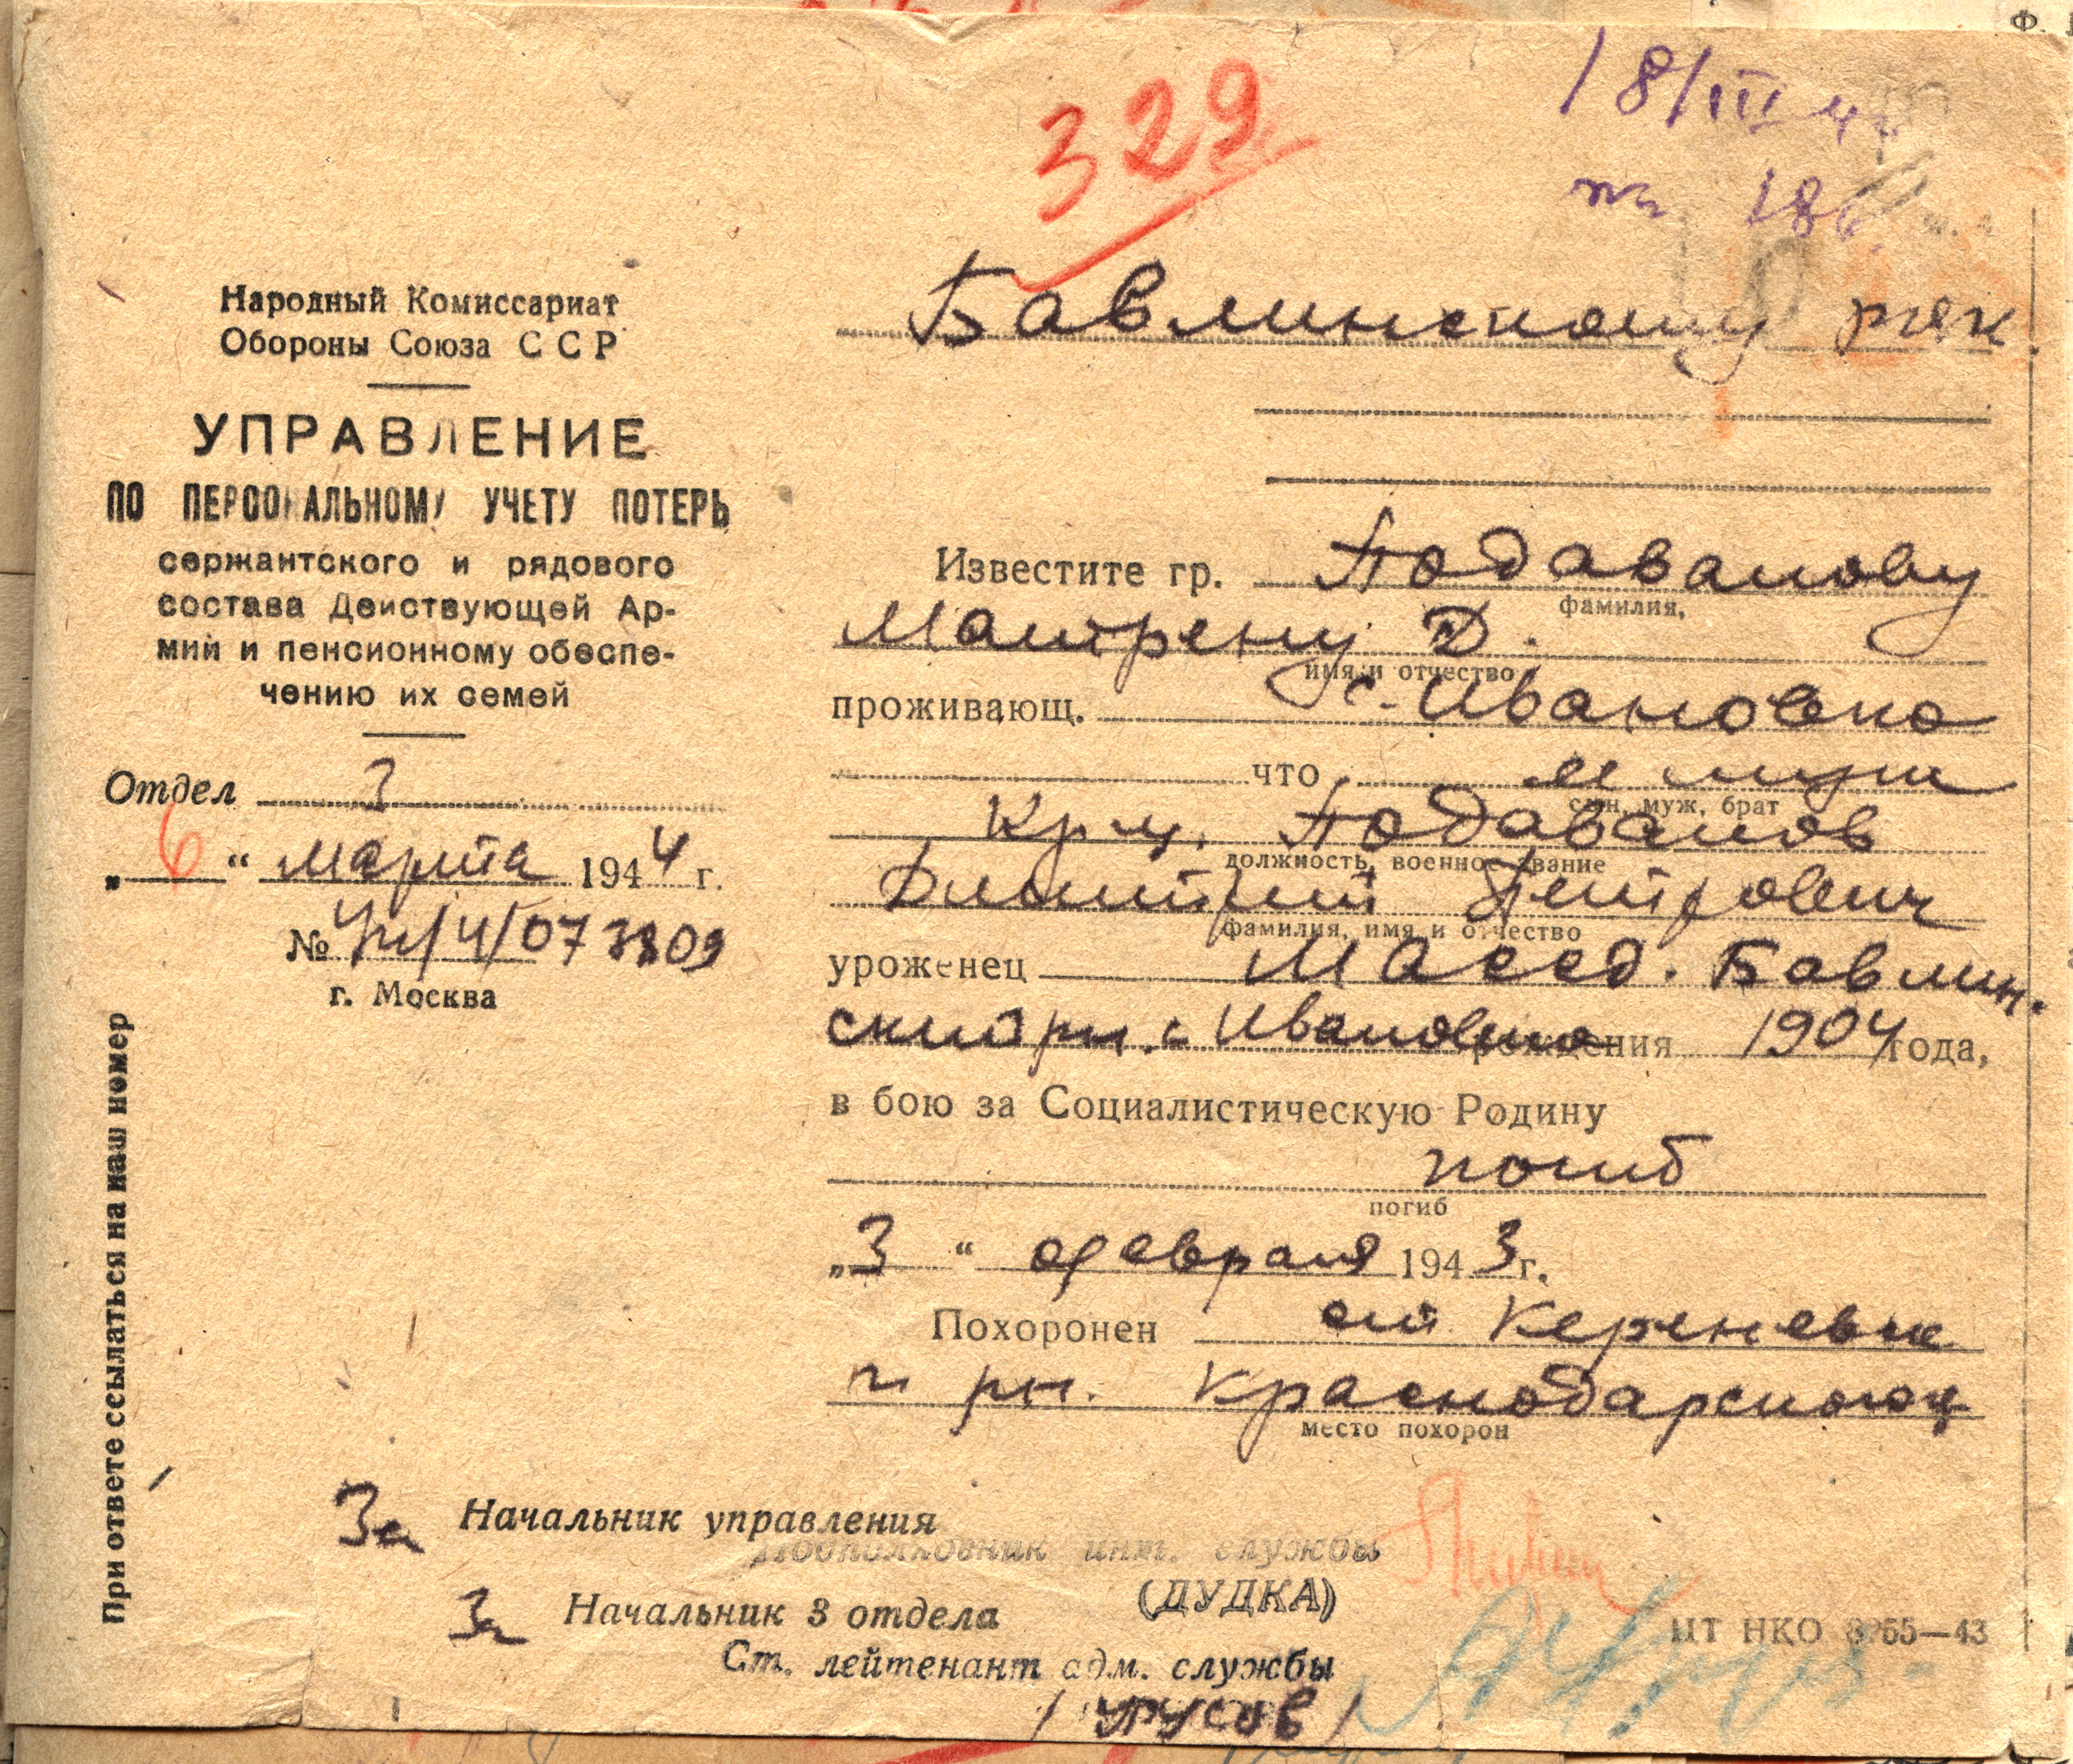 329
18/III 44
Бавлинскому рвк
Народный Комиссариат
Обороны Союза ССР
УПРАВЛЕНИЕ
ПО ПЕРСОНАЛЬНОМУ УЧЕТУ ПОТЕРЬ
сержантского и рядового
состава Действующей Ар-
мии и пенсионному обеспе-
чению их семей
Отдел 3
„6“ марта 1944 г.
№ 4/073809
г. Москва
При ответе ссылаться на наш номер
Известите гр. Подаванову
фамилия,
Матрену Д.
имя и отчество
проживающ. с. Ивановка
что ее муж
сын, муж, брат
Кр-ц. Подаванов
должность, военное звание
Дмитрий Петрович
фамилия, имя и отчество
уроженец ТАССР. Бавлин.
ский рн. с Ивановка рождения 1904 года,
в бою за Социалистическую Родину
погиб
погиб
„3“ февраля 1943 г.
Похоронен ст.
рн. Краснодарского
место похорон
За Начальник управления
Подполковник инт. службы
(ДУДКА)
За Начальник 3 отдела
Ст. лейтенант адм. службы
/ УРУСОВ /
ЦТ НКО 8265—43